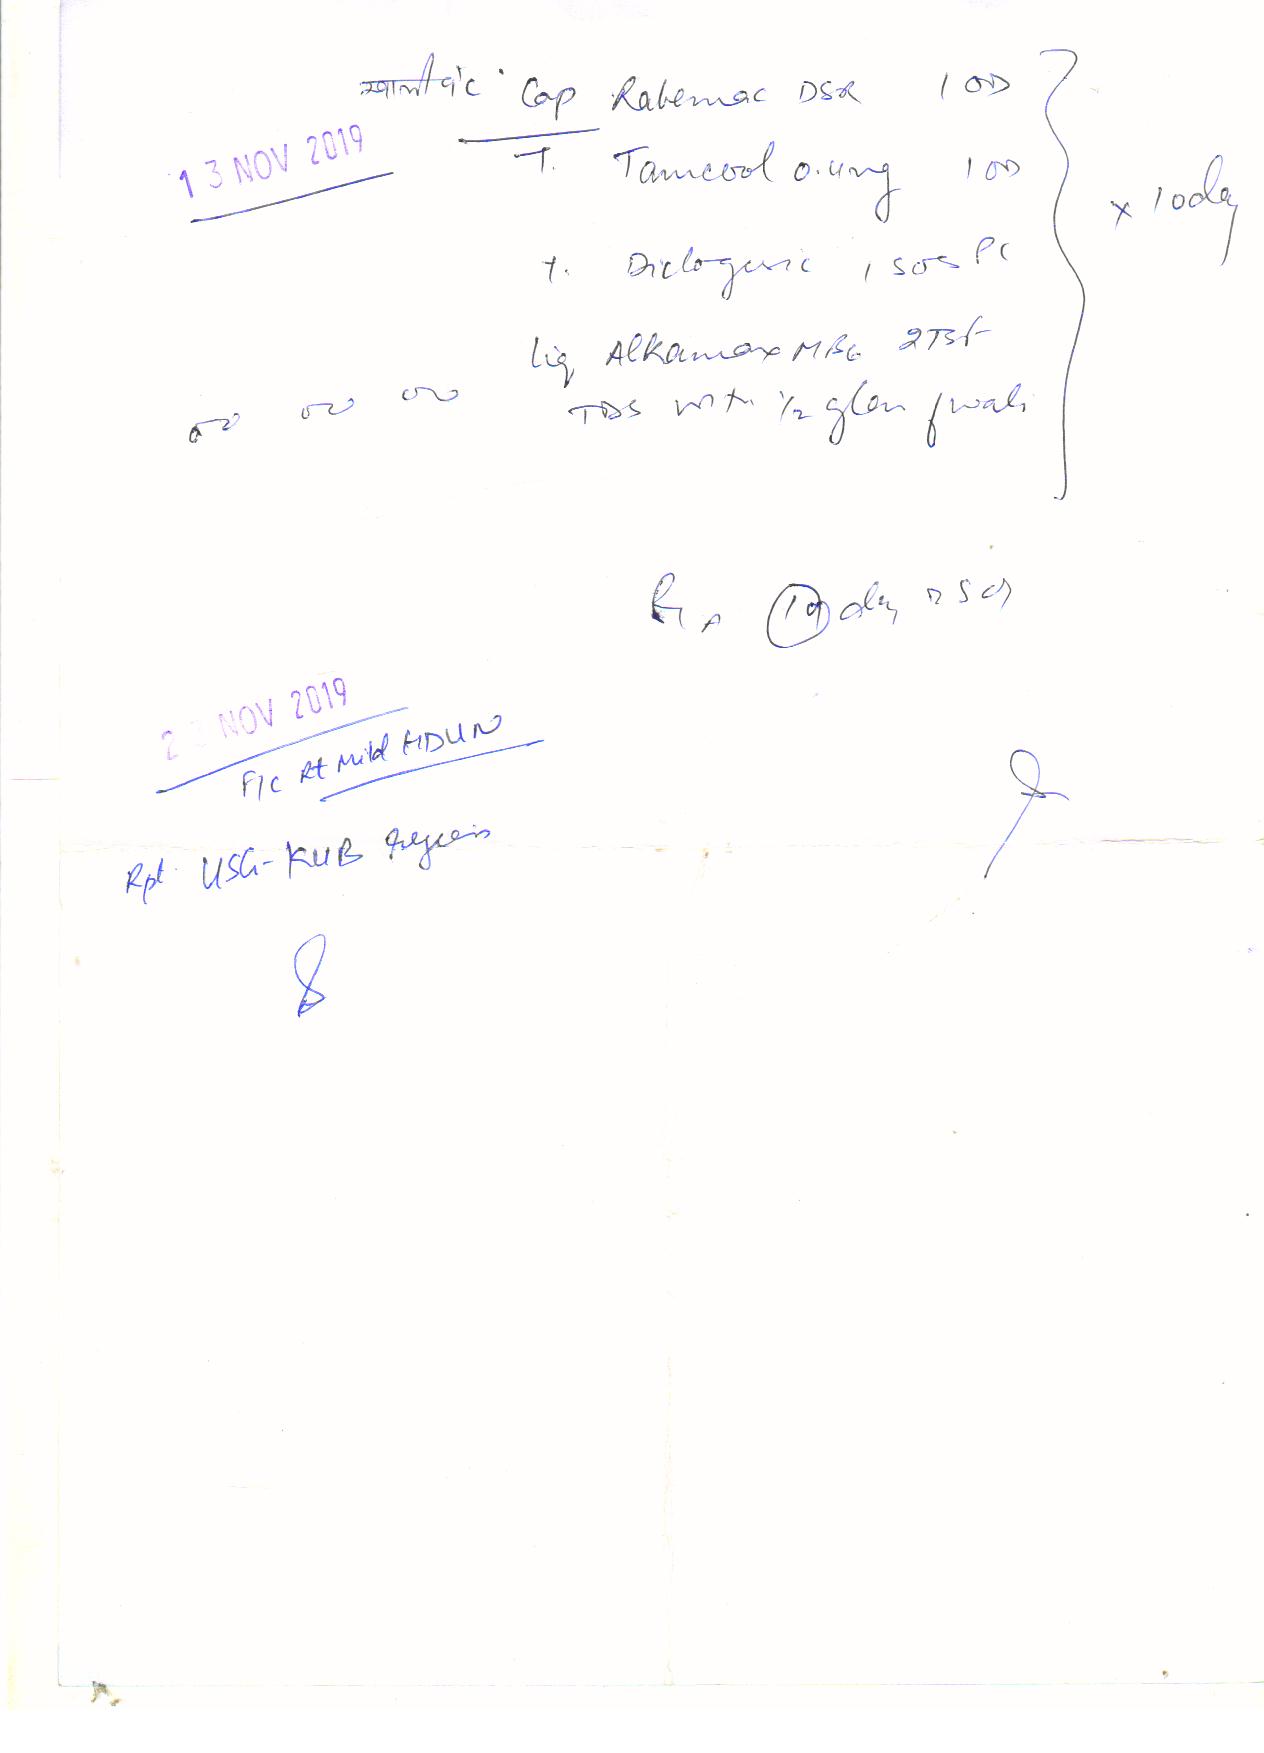 खालीपेट Cap Rabemac DSR 1 OD
13 NOV 2019
T. Tamcool 0.4mg 1 OD
x 10day
T. Diclogesic 1 SOS PC
Liq Alkamax MB6 2TSF
TDS with 1/2 glass of water
10 day
2 NOV 2019
F/C Rt Mild HDUN
Rpt. USG-KUB